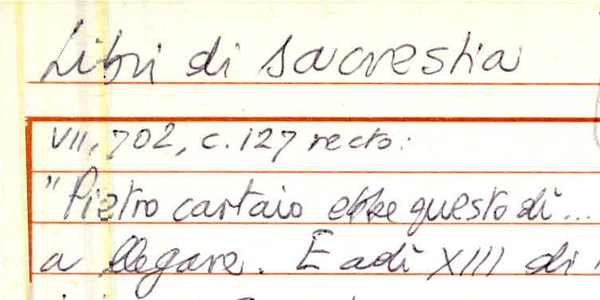 Libri di sacrestia
VII, 702, c. 127 recto:
"Pietro cartaio ebbe questo dì...
a llegare. E adì XIII di